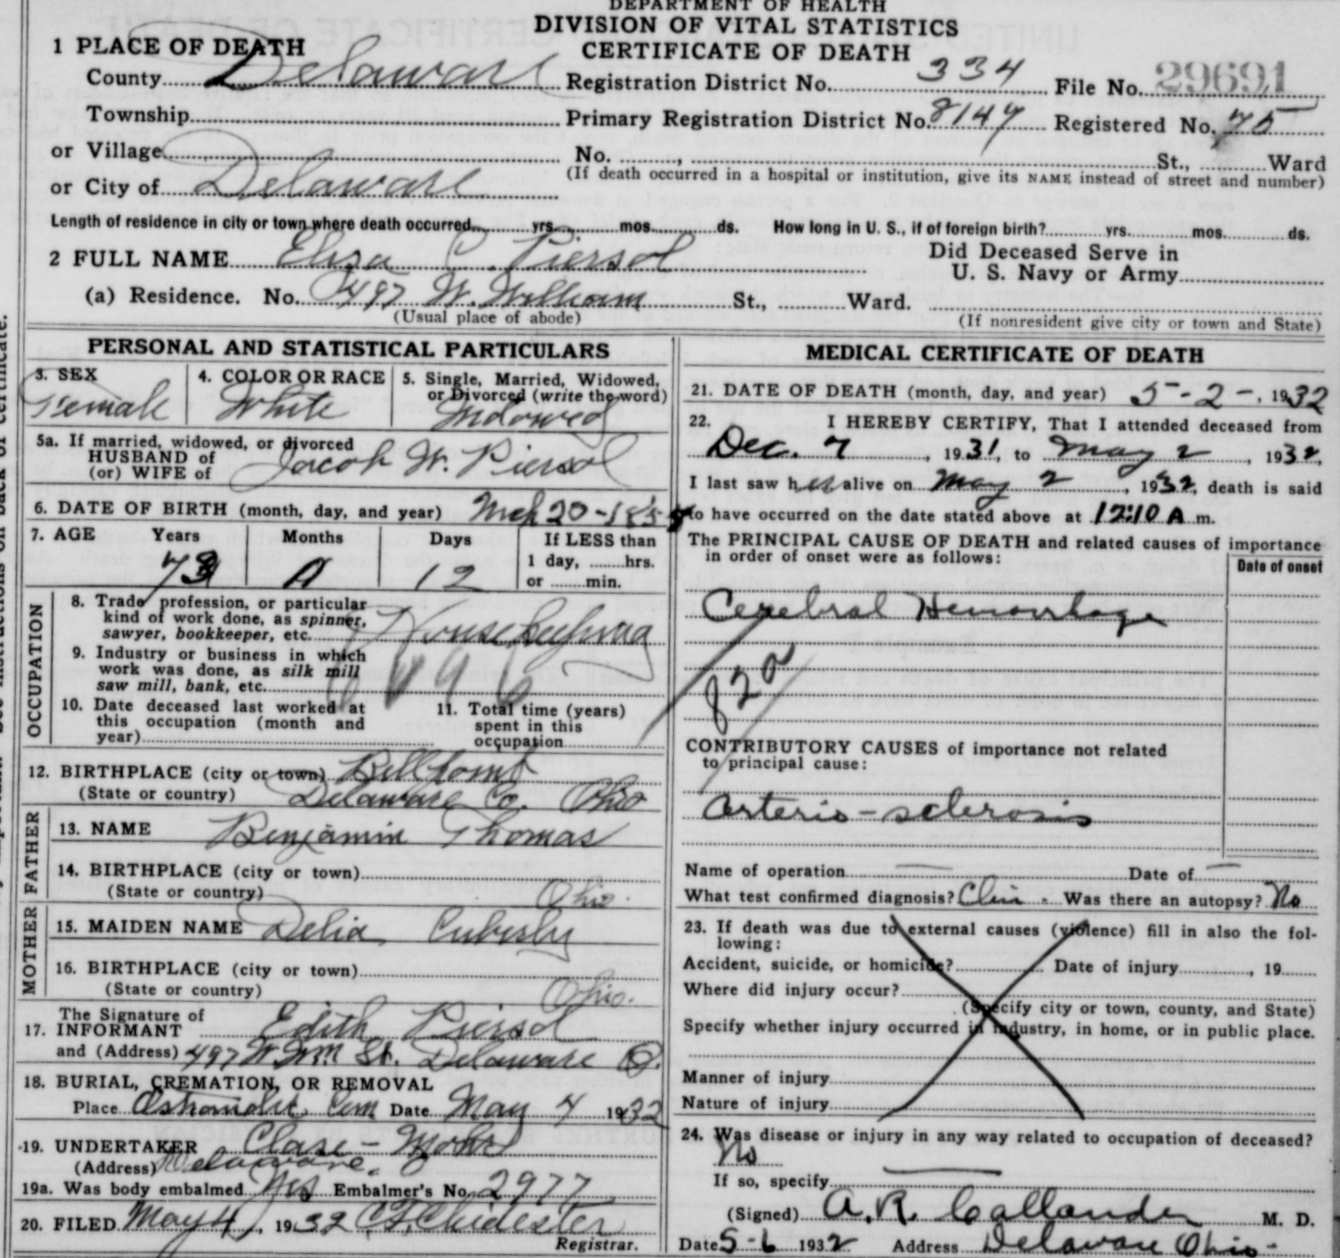 DEPARTMENT OF HEALTH
DIVISION OF VITAL STATISTICS
CERTIFICATE OF DEATH
1 PLACE OF DEATH
County Delaware Registration District No. 334 File No. 29691
Township Primary Registration District No. 8147 Registered No. 75
or Village No. , St., Ward
or City of Delaware (If death occurred in a hospital or institution, give its NAME instead of street and number)
Length of residence in city or town where death occurred yrs. mos. ds. How long in U. S., if of foreign birth? yrs. mos. ds.
2 FULL NAME Eliza C. Piersol Did Deceased Serve in U. S. Navy or Army
(a) Residence. No. 497 W. William St., Ward.
(Usual place of abode) (If nonresident give city or town and State)
PERSONAL AND STATISTICAL PARTICULARS
3. SEX 4. COLOR OR RACE 5. Single, Married, Widowed, or Divorced (write the word)
Female White Widowed
5a. If married, widowed, or divorced
HUSBAND of
(or) WIFE of Jacob W. Piersol
6. DATE OF BIRTH (month, day, and year) Mch 20-185
7. AGE Years Months Days If LESS than
1 day, hrs.
or min.
12
8. Trade, profession, or particular
kind of work done, as spinner,
sawyer, bookkeeper, etc. Housekeeping
9. Industry or business in which
work was done, as silk mill
saw mill, bank, etc.
10. Date deceased last worked at
this occupation (month and
year)
11. Total time (years)
spent in this
occupation
OCCUPATION
12. BIRTHPLACE (city or town)
(State or country) Delaware Co. Ohio
FATHER
13. NAME Benjamin Thomas
14. BIRTHPLACE (city or town)
(State or country) Ohio
MOTHER
15. MAIDEN NAME Delia
16. BIRTHPLACE (city or town)
(State or country) Ohio.
17. The Signature of
INFORMANT Edith Piersol
and (Address) 497 W. Wm St. Delaware O.
18. BURIAL, CREMATION, OR REMOVAL
Place Cem Date May 4 1932
19. UNDERTAKER
(Address) Delaware, O
19a. Was body embalmed Yes Embalmer's No. 2977
20. FILED May 4, 1932 C. F. Chidester
Registrar.
MEDICAL CERTIFICATE OF DEATH
21. DATE OF DEATH (month, day, and year) 5-2-, 1932
22. I HEREBY CERTIFY, That I attended deceased from
Dec. 7, 1931, to May 2, 1932,
I last saw her alive on May 2, 1932, death is said
to have occurred on the date stated above at 12:10 A m.
The PRINCIPAL CAUSE OF DEATH and related causes of importance
in order of onset were as follows:
Date of onset
Cerebral Hemorrhage
CONTRIBUTORY CAUSES of importance not related
to principal cause:
Arterio-sclerosis
Name of operation — Date of —
What test confirmed diagnosis? Clin. Was there an autopsy? No
23. If death was due to external causes (violence) fill in also the fol-
lowing:
Accident, suicide, or homicide? Date of injury , 19
Where did injury occur?
(Specify city or town, county, and State)
Specify whether injury occurred in industry, in home, or in public place.
Manner of injury
Nature of injury
24. Was disease or injury in any way related to occupation of deceased?
No
If so, specify
(Signed) A. R. Callander M. D.
Date 5-6 1932 Address Delaware Ohio-